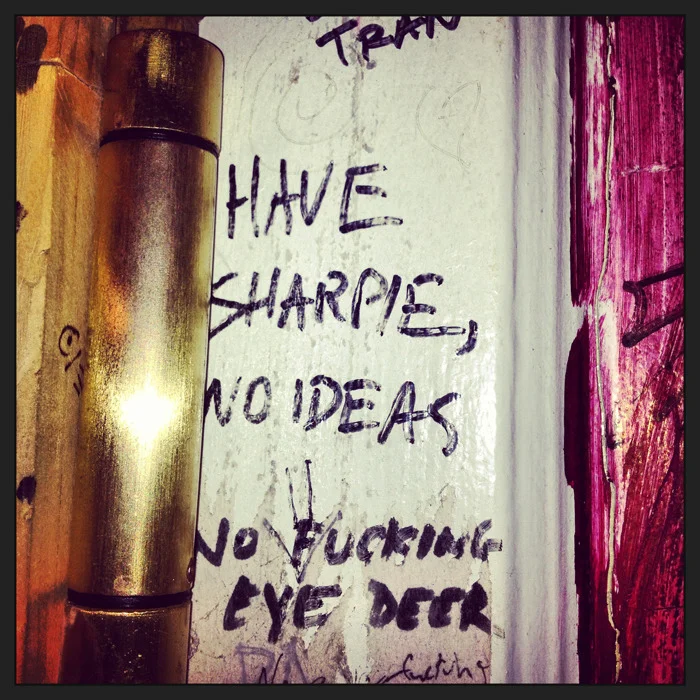 TRAN
HAVE
SHARPIE,
NO IDEAS
NO FUCKING
EYE DEER